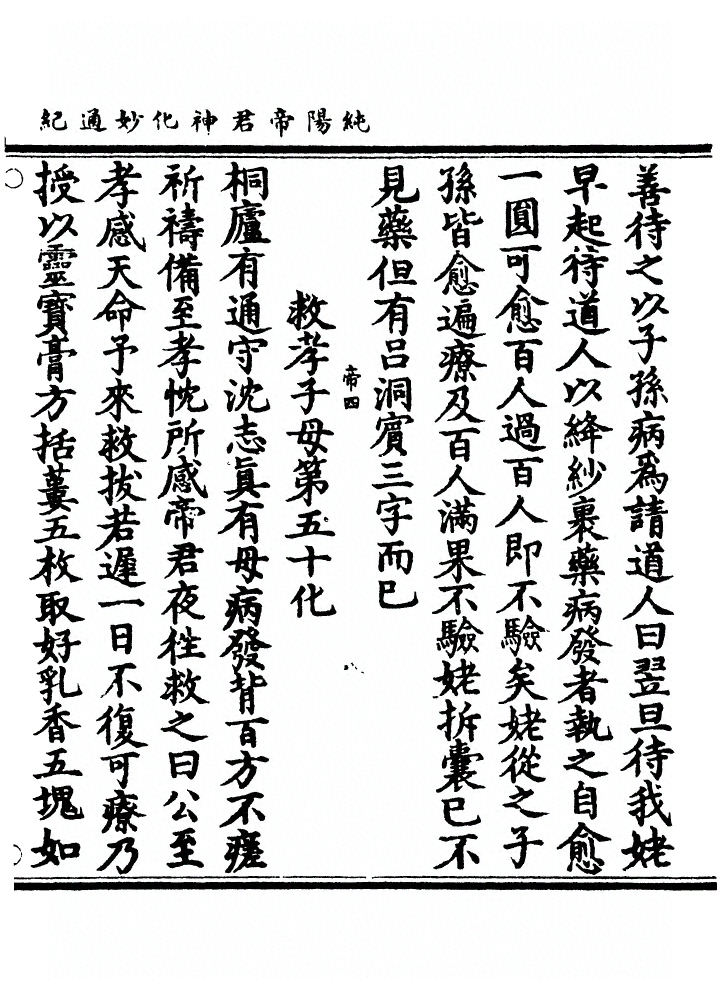 純陽帝君神化妙通紀
善待之以子孫病爲請道人曰翌旦待我姥
早起待道人以絳紗裹藥病發者執之自愈
一圓可愈百人過百人即不驗矣姥從之子
孫皆愈遍療及百人滿果不驗姥拆囊已不
見藥但有呂洞賓三字而已
帝四
救孝子母第五十化
桐廬有通守沈志眞有母病發背百方不瘥
祈禱備至孝忱所感帝君夜徃救之曰公至
孝感天命予來救拔若遲一日不復可療乃
授以靈寶膏方括蔞五枚取好乳香五塊如